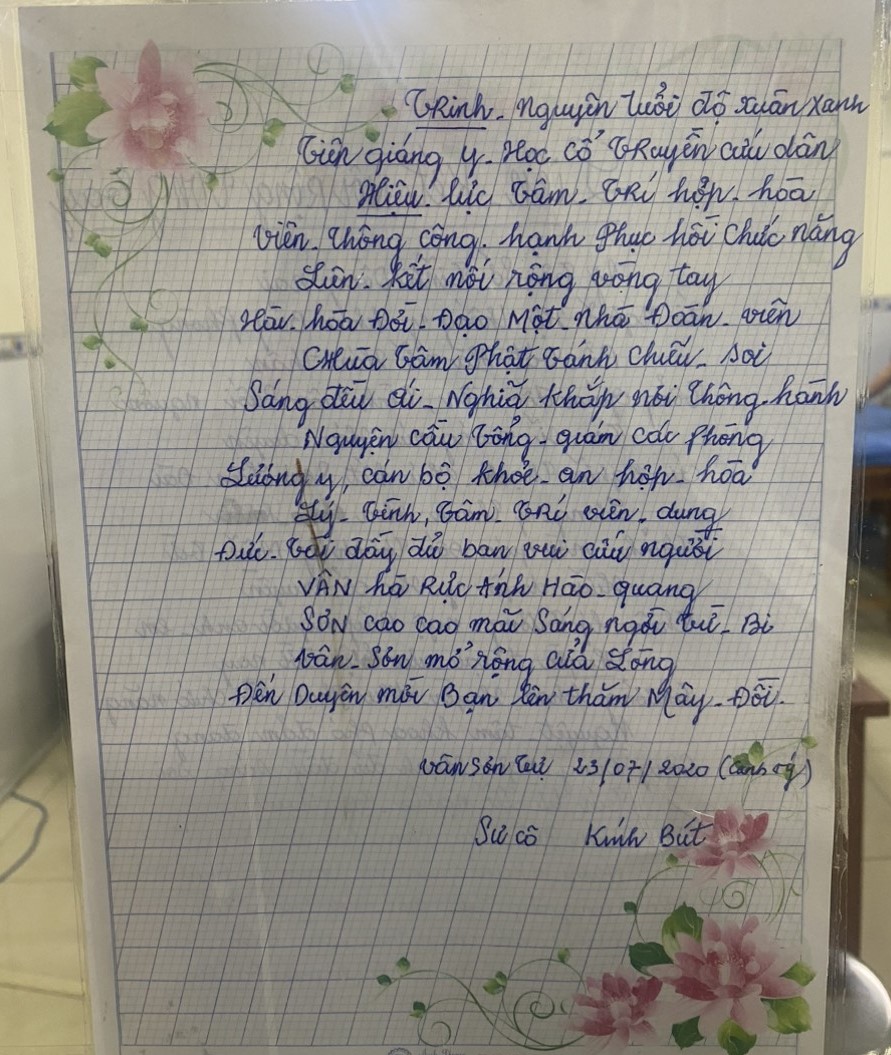 Trinh. Nguyên tuổi độ xuân xanh
Tiên giáng y. Học cổ Truyền cứu dân
Hiệu. lực Tâm. Trí hợp. hòa
Viên. Thông công. hạnh Phục hồi Chức năng
Liên. kết nối rộng vòng tay
Hài. hòa Đời. Đạo Một. nhà Đoàn. viên
CHùa Tâm Phật Tánh Chiếu. soi
Sáng đều ái. Nghĩa khắp nơi Thông. hành
Nguyện cầu Tổng. quán các Phòng
Lương y, cán bộ khỏe. an hợp. hòa
Lý. Tình, Tâm. Trí viên. dung
Đức. Tài đầy đủ ban vui cứu người
VÂN hà Rực Ánh Hào. quang
SƠN cao cao mãi Sáng ngời từ. Bi
Vân. Sơn mở rộng cửa Lòng
Đến Duyên mời Bạn lên thăm Mây. Đồi.
Vân Sơn Tự 23/07/2020 (Canh Tý)
Sư cô Kính Bút